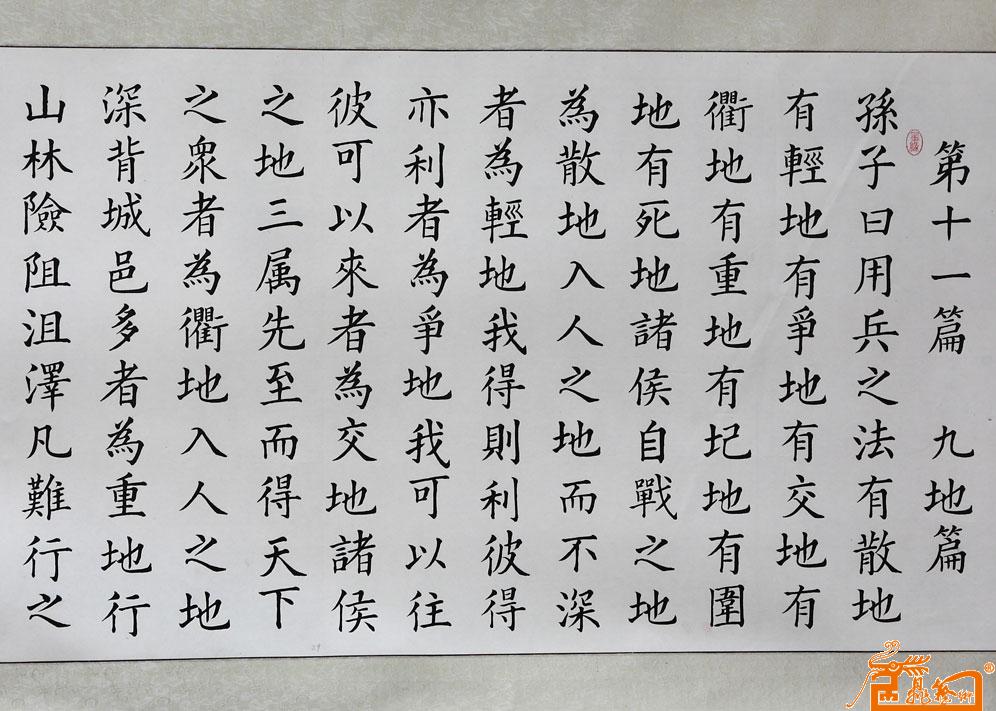 第十一篇 九地篇
孫子曰用兵之法有散地
有輕地有爭地有交地有
衢地有重地有圮地有圍
地有死地諸侯自戰之地
為散地入人之地而不深
者為輕地我得則利彼得
亦利者為爭地我可以往
彼可以來者為交地諸侯
之地三属先至而得天下
之衆者為衢地入人之地
深背城邑多者為重地行
山林險阻沮澤凡難行之